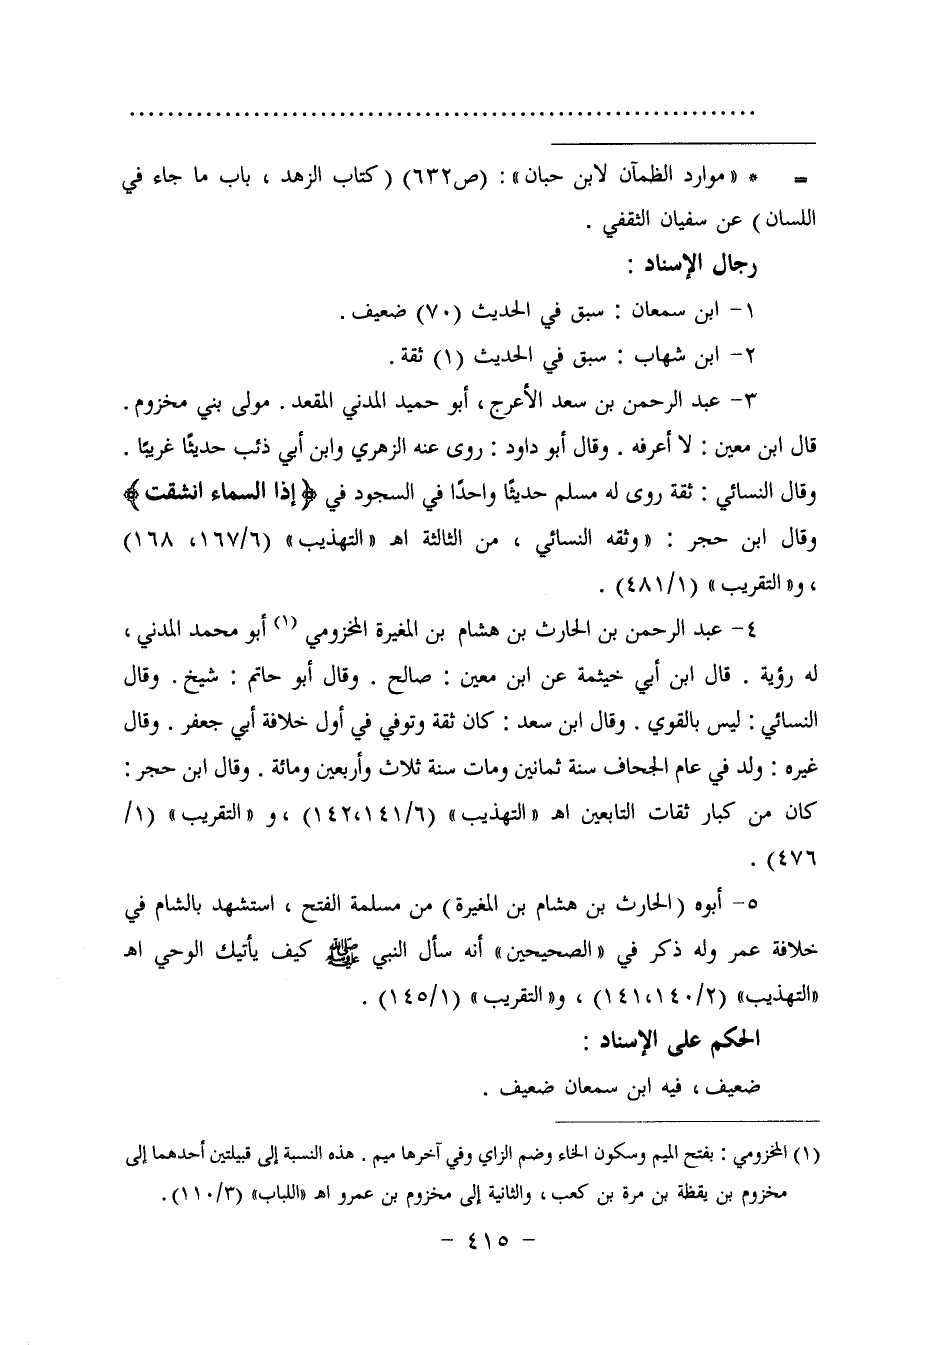 ................................................................
= * «موارد الظمآن لابن حبان» : (ص٦٣٢) ( كتاب الزهد ، باب ما جاء في
اللسان ) عن سفيان الثقفي .
رجال الإسناد :
١- ابن سمعان : سبق في الحديث (٧٠) ضعيف .
٢- ابن شهاب : سبق في الحديث (١) ثقة .
٣- عبد الرحمن بن سعد الأعرج ، أبو حميد المدني المقعد . مولى بني مخزوم .
قال ابن معين : لا أعرفه . وقال أبو داود : روى عنه الزهري وابن أبي ذئب حديثًا غريبًا .
وقال النسائي : ثقة روى له مسلم حديثًا واحدًا في السجود في ﴿ إذا السماء انشقت ﴾
وقال ابن حجر : « وثقه النسائي ، من الثالثة اهـ « التهذيب » (١٦٧/٦، ١٦٨)
، و« التقريب » (٤٨١/١) .
٤- عبد الرحمن بن الحارث بن هشام بن المغيرة المخزومي (١) أبو محمد المدني ،
له رؤية . قال ابن أبي خيثمة عن ابن معين : صالح . وقال أبو حاتم : شيخ . وقال
النسائي : ليس بالقوي . وقال ابن سعد : كان ثقة وتوفي في أول خلافة أبي جعفر . وقال
غيره : ولد في عام الجحاف سنة ثمانين ومات سنة ثلاث وأربعين ومائة . وقال ابن حجر :
كان من كبار ثقات التابعين اهـ « التهذيب » (١٤٢،١٤١/٦) ، و « التقريب » (١/
٤٧٦) .
٥- أبوه ( الحارث بن هشام بن المغيرة ) من مسلمة الفتح ، استشهد بالشام في
خلافة عمر وله ذكر في « الصحيحين » أنه سأل النبي ﷺ كيف يأتيك الوحي اهـ
«التهذيب» (١٤١،١٤٠/٢) ، و« التقريب » (١٤٥/١) .
الحكم على الإسناد :
ضعيف ، فيه ابن سمعان ضعيف .
(١) المخزومي : بفتح الميم وسكون الخاء وضم الزاي وفي آخرها ميم . هذه النسبة إلى قبيلتين أحدهما إلى
مخزوم بن يقظة بن مرة بن كعب ، والثانية إلى مخزوم بن عمرو اهـ «اللباب» (١١٠/٣) .
- ٤١٥ -